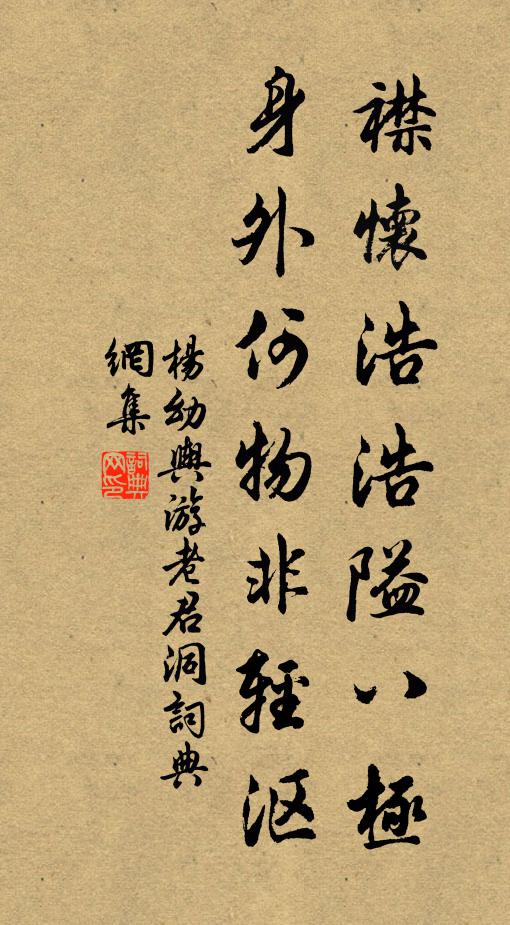 襟懷浩浩隘八極
身外何物非輕沤
楊幼輿游老君洞詞典
網集
詞典网印